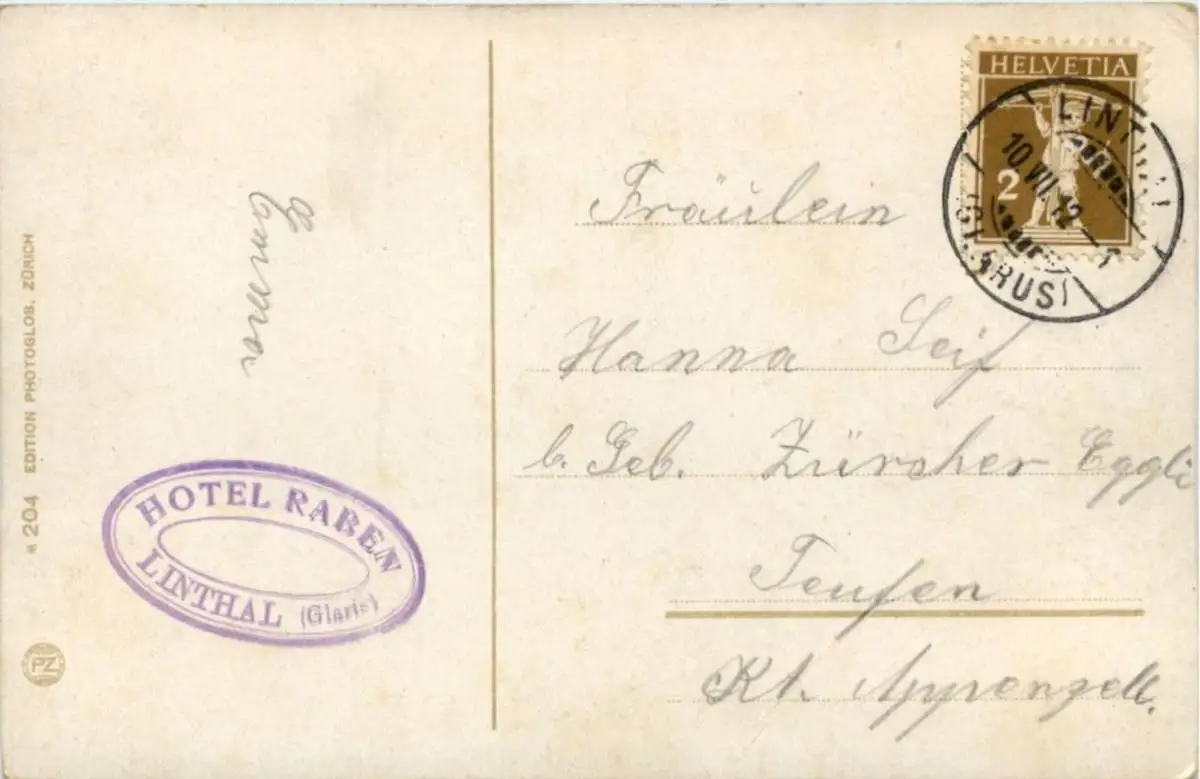 204 EDITION PHOTOGLOB. ZÜRICH
PZ
HOTEL RABEN
LINTHAL (Glaris)
HELVETIA
2
LINTHAL
10 VII. 12
(GLARUS)
Fräulein
Hanna Seif
b. Geb. Zürcher Eggli
Teufen
Kt. Appenzell.